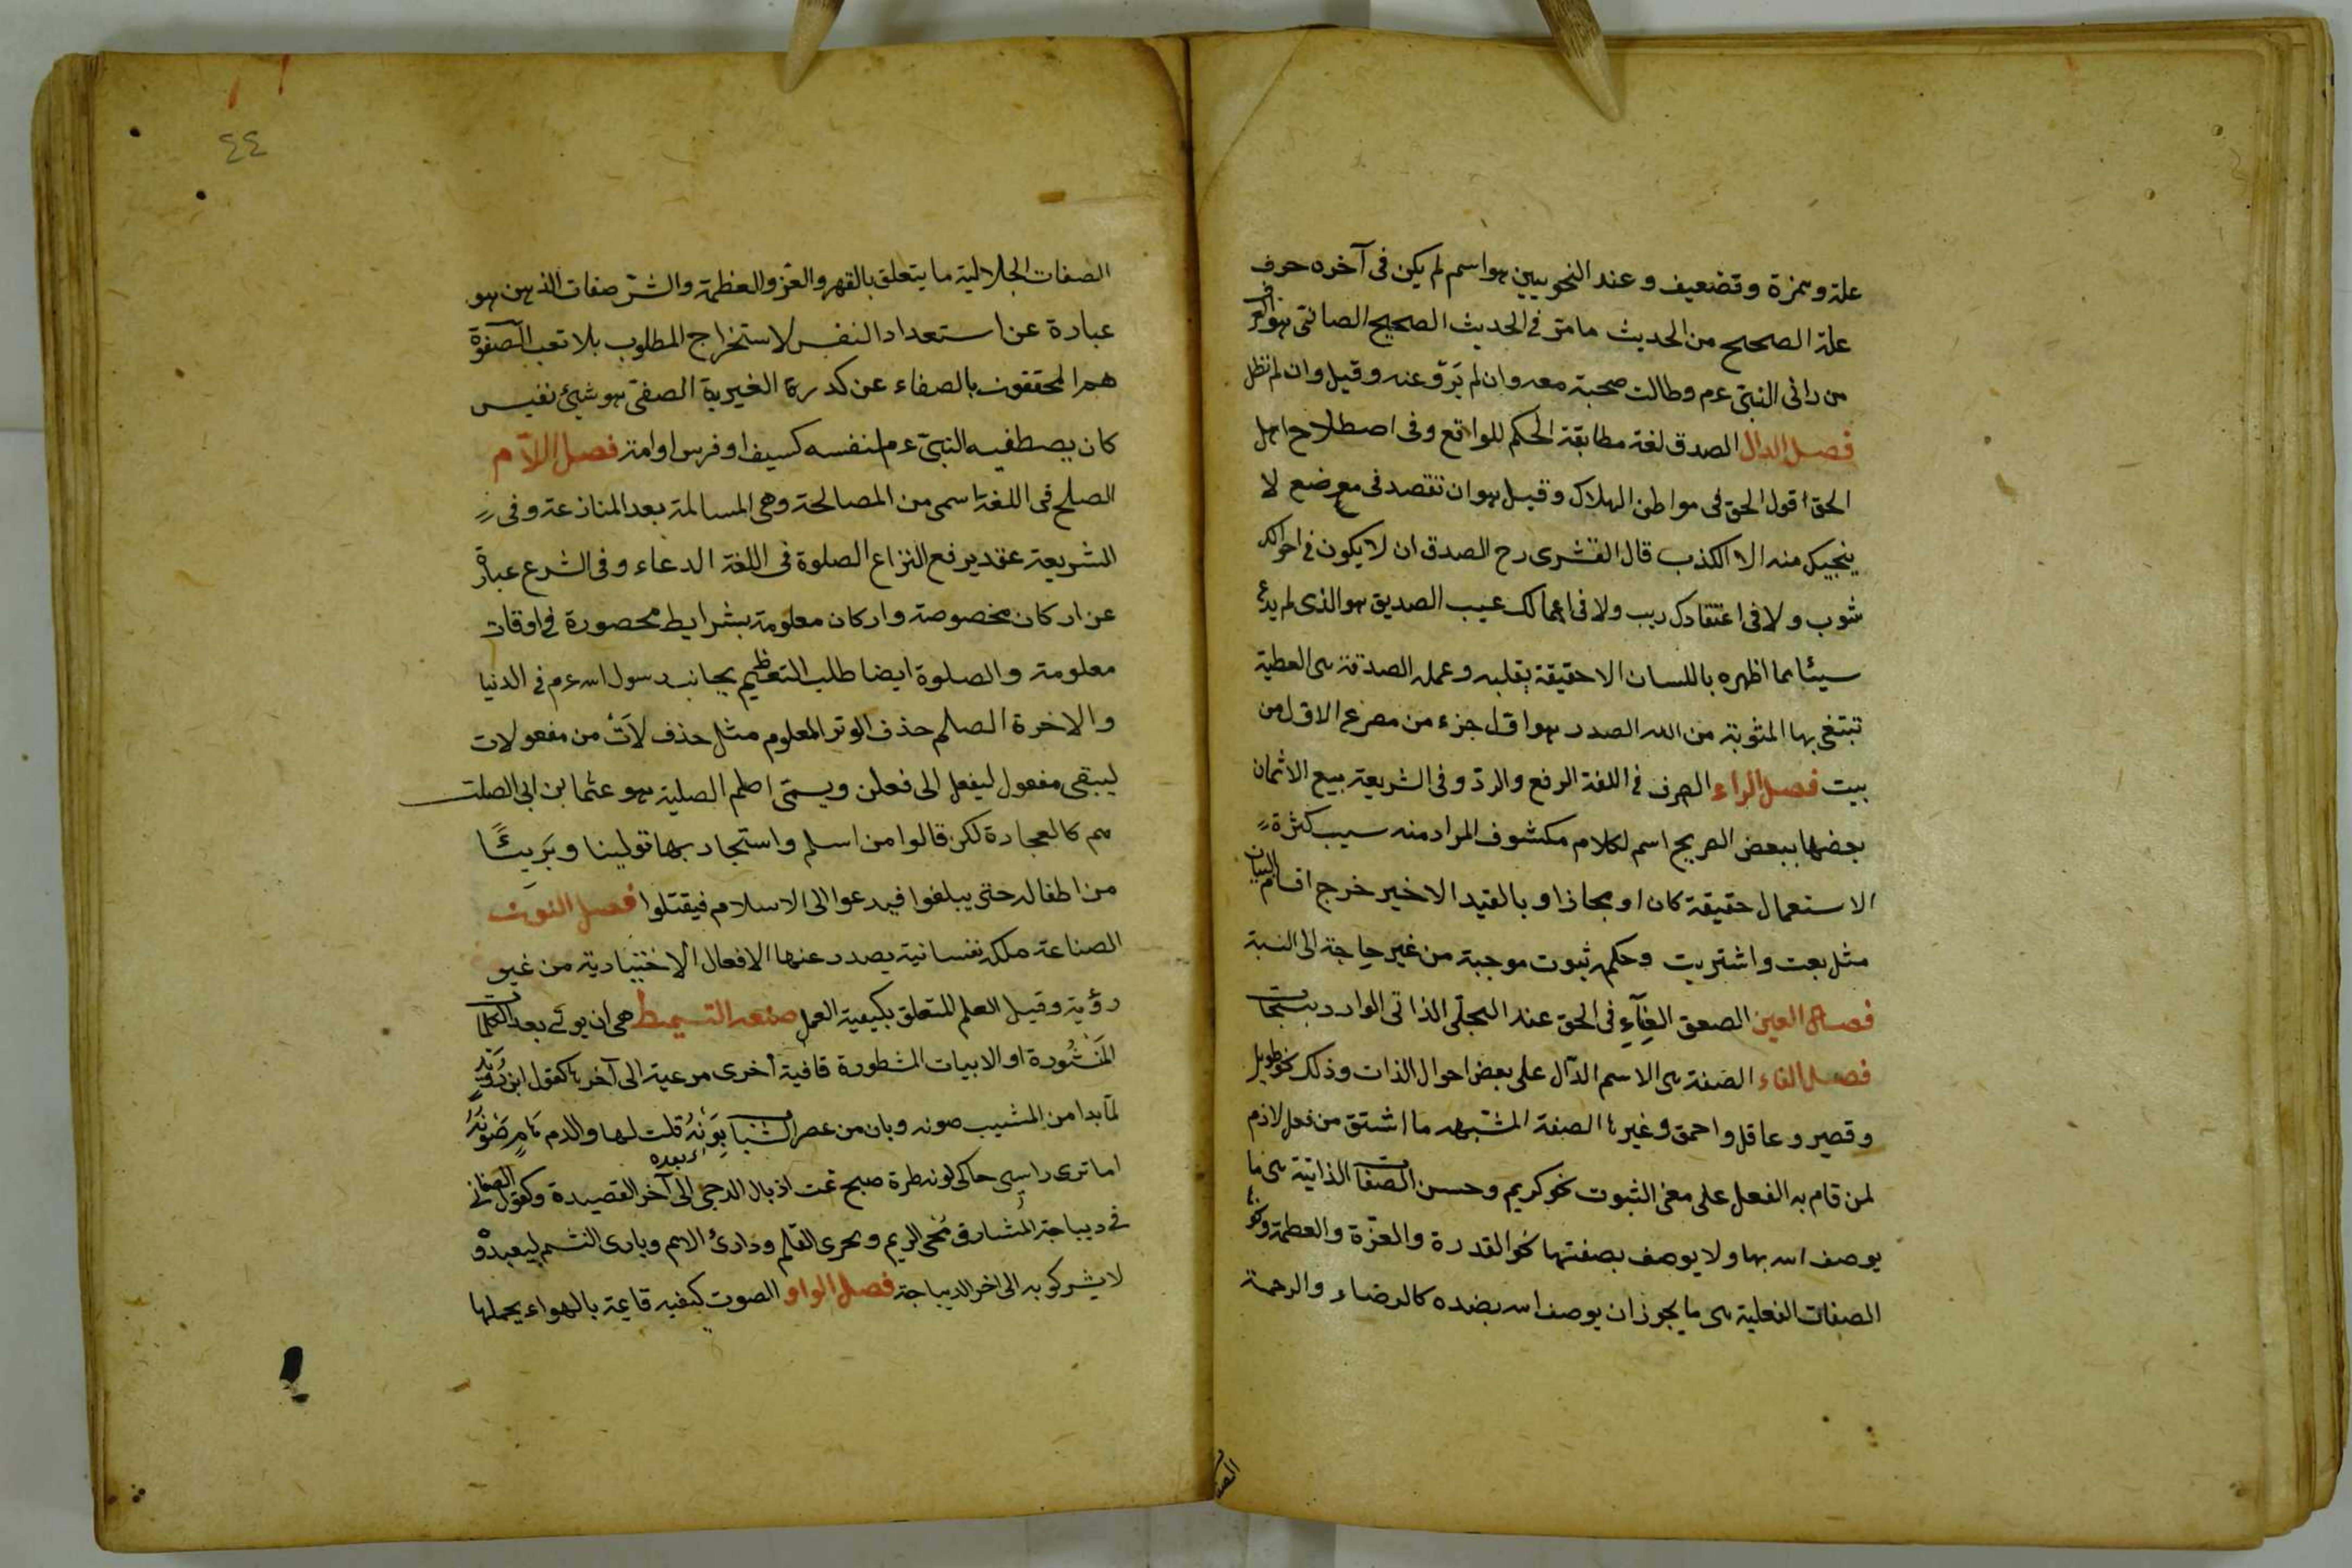 علة وهمزة وتضعيف وعند النحويين هو اسم لم يكن في آخره حرف
علة الصحيح من الحديث ما مر في الحديث الصحيح الصحابي هو في العرف
من رائى النبى عم وطالت صحبته معه وان لم يرو عنه وقيل وان لم تطل
فصل الدال الصدق لغة مطابقة الحكم للواقع وفى اصطلاح اهل
الحق قول الحق فى مواطن الهلاك وقيل هو ان تصدق فى موضع لا
ينجيك منه الا الكذب قال القشرى رح الصدق ان لا يكون فى احوالك
شوب ولا فى اعتقادك ريب ولا فى اعمالك عيب الصديق هو الذى لم يدع
سيئا مما اظهره باللسان الا حقيقة بقلبه وعمله الصدقة هى العطية
تبتغى بها المثوبة من الله الصدر هو اول جزء من مصرع الاول من
بيت فصل الراء الصرف فى اللغة الرفع والرد وفى الشريعة بيع الاثمان
بعضها ببعض الصريح اسم لكلام مكشوف المراد منه سبب كثرة
الاستعمال حقيقة كان او مجازا وبالقيد الاخير خرج اقسام البيان
مثل بعت واشتريت وحكمه ثبوت موجبة من غير حاجة الى النية
فصل العين الصعق الفناء فى الحق عند التجلى الذاتى الوارد بسبحات
فصل الفاء الصفة هى الاسم الدال على بعض احوال الذات وذلك نحو طويل
وقصير وعاقل واحمق وغيرها الصفة المشبهه ما اشتق من فعل لازم
لمن قام به الفعل على معنى الثبوت نحو كريم وحسن الصفات الذاتية هى ما
يوصف الله بها ولا يوصف بضدها نحو القدرة والعزة والعظمة ونحوها
الصفات الفعلية هى ما يجوز ان يوصف الله بضده كالرضاء والرحمة
٤٤
الصفات الجلالية ما يتعلق بالقهر والعز والعظمة والستر صفات الذهن هو
عبارة عن استعداد النفس لاستخراج المطلوب بلا تعب الصفوة
هم المحققون بالصفاء عن كدرة الغيرية الصفى هو شيئ نفيس
كان يصطفيه النبى عم لنفسه كسيف او فرس او امة فصل اللام
الصلح فى اللغة اسمى من المصالحة وهى المسالمة بعد المنازعة وفى
الشريعة عقد يرفع النزاع الصلوة فى اللغة الدعاء وفى الشرع عبارة
عن اركان مخصوصة واركان معلومة بشرايط محصورة فى اوقات
معلومة والصلوة ايضا طلب التعظيم بجانب رسول الله عم فى الدنيا
والاخرة الصلم حذف الوتر المعلوم مثل حذف لات من مفعولات
ليبقى مفعول ليفعل الى فعلن ويسمى اصلم الصلية هو عثما بن ابى الصلت
هم كالعجاردة لكن قالوا من اسلم واستجار بها تولينا وبريئا
من اطفاله حتى يبلغوا فيدعوا الى الاسلام فيقتلوا فصل النون
الصناعة ملكة نفسانية يصدر عنها الافعال الاختيارية من غير
رؤية وقيل العلم المتعلق بكيفية العمل صنعة التسميط هى ان يوتى بعد الكلمات
المنثورة او الابيات المشطورة قافية أخرى مرعية الى آخرها كقول ابن دريد
لما بدا من المشيب صونه وبان من عصر الشباب بونه قلت لها والدمع هام صونه
اما ترى راسى حاكى لونه طرة صبح تحت اذيال الدجى الى آخر القصيدة وكقول الصغانى
فى ديباجة المشارق محى الرمم ومجرى القلم وذارئ الامم وبارى النسم ليعبدوه
لا يشركو به الى اخر الديباجة فصل الواو الصوت كيفية قايمة بالهواء يحملها